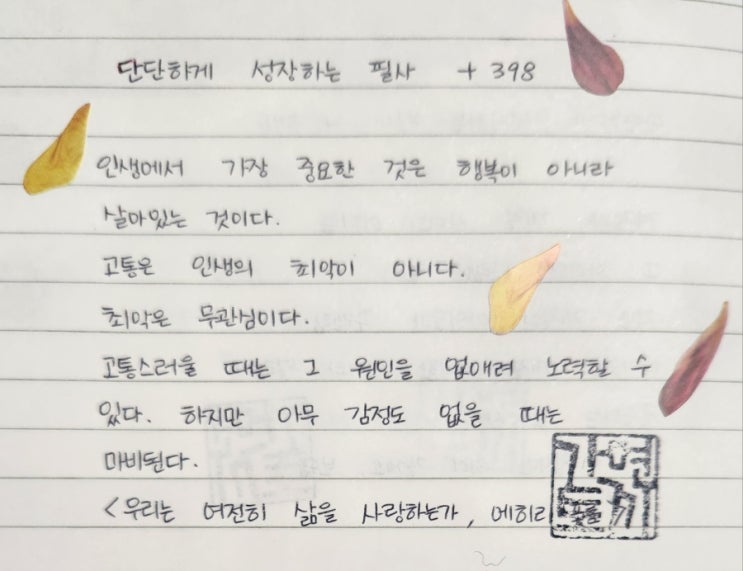 단단하게 성장하는 필사 + 398
인생에서 가장 중요한 것은 행복이 아니라
살아있는 것이다.
고통은 인생의 최악이 아니다.
최악은 무관심이다.
고통스러울 때는 그 원인을 없애려 노력할 수
있다. 하지만 아무 감정도 없을 때는
마비된다.
<우리는 여전히 삶을 사랑하는가, 에히리